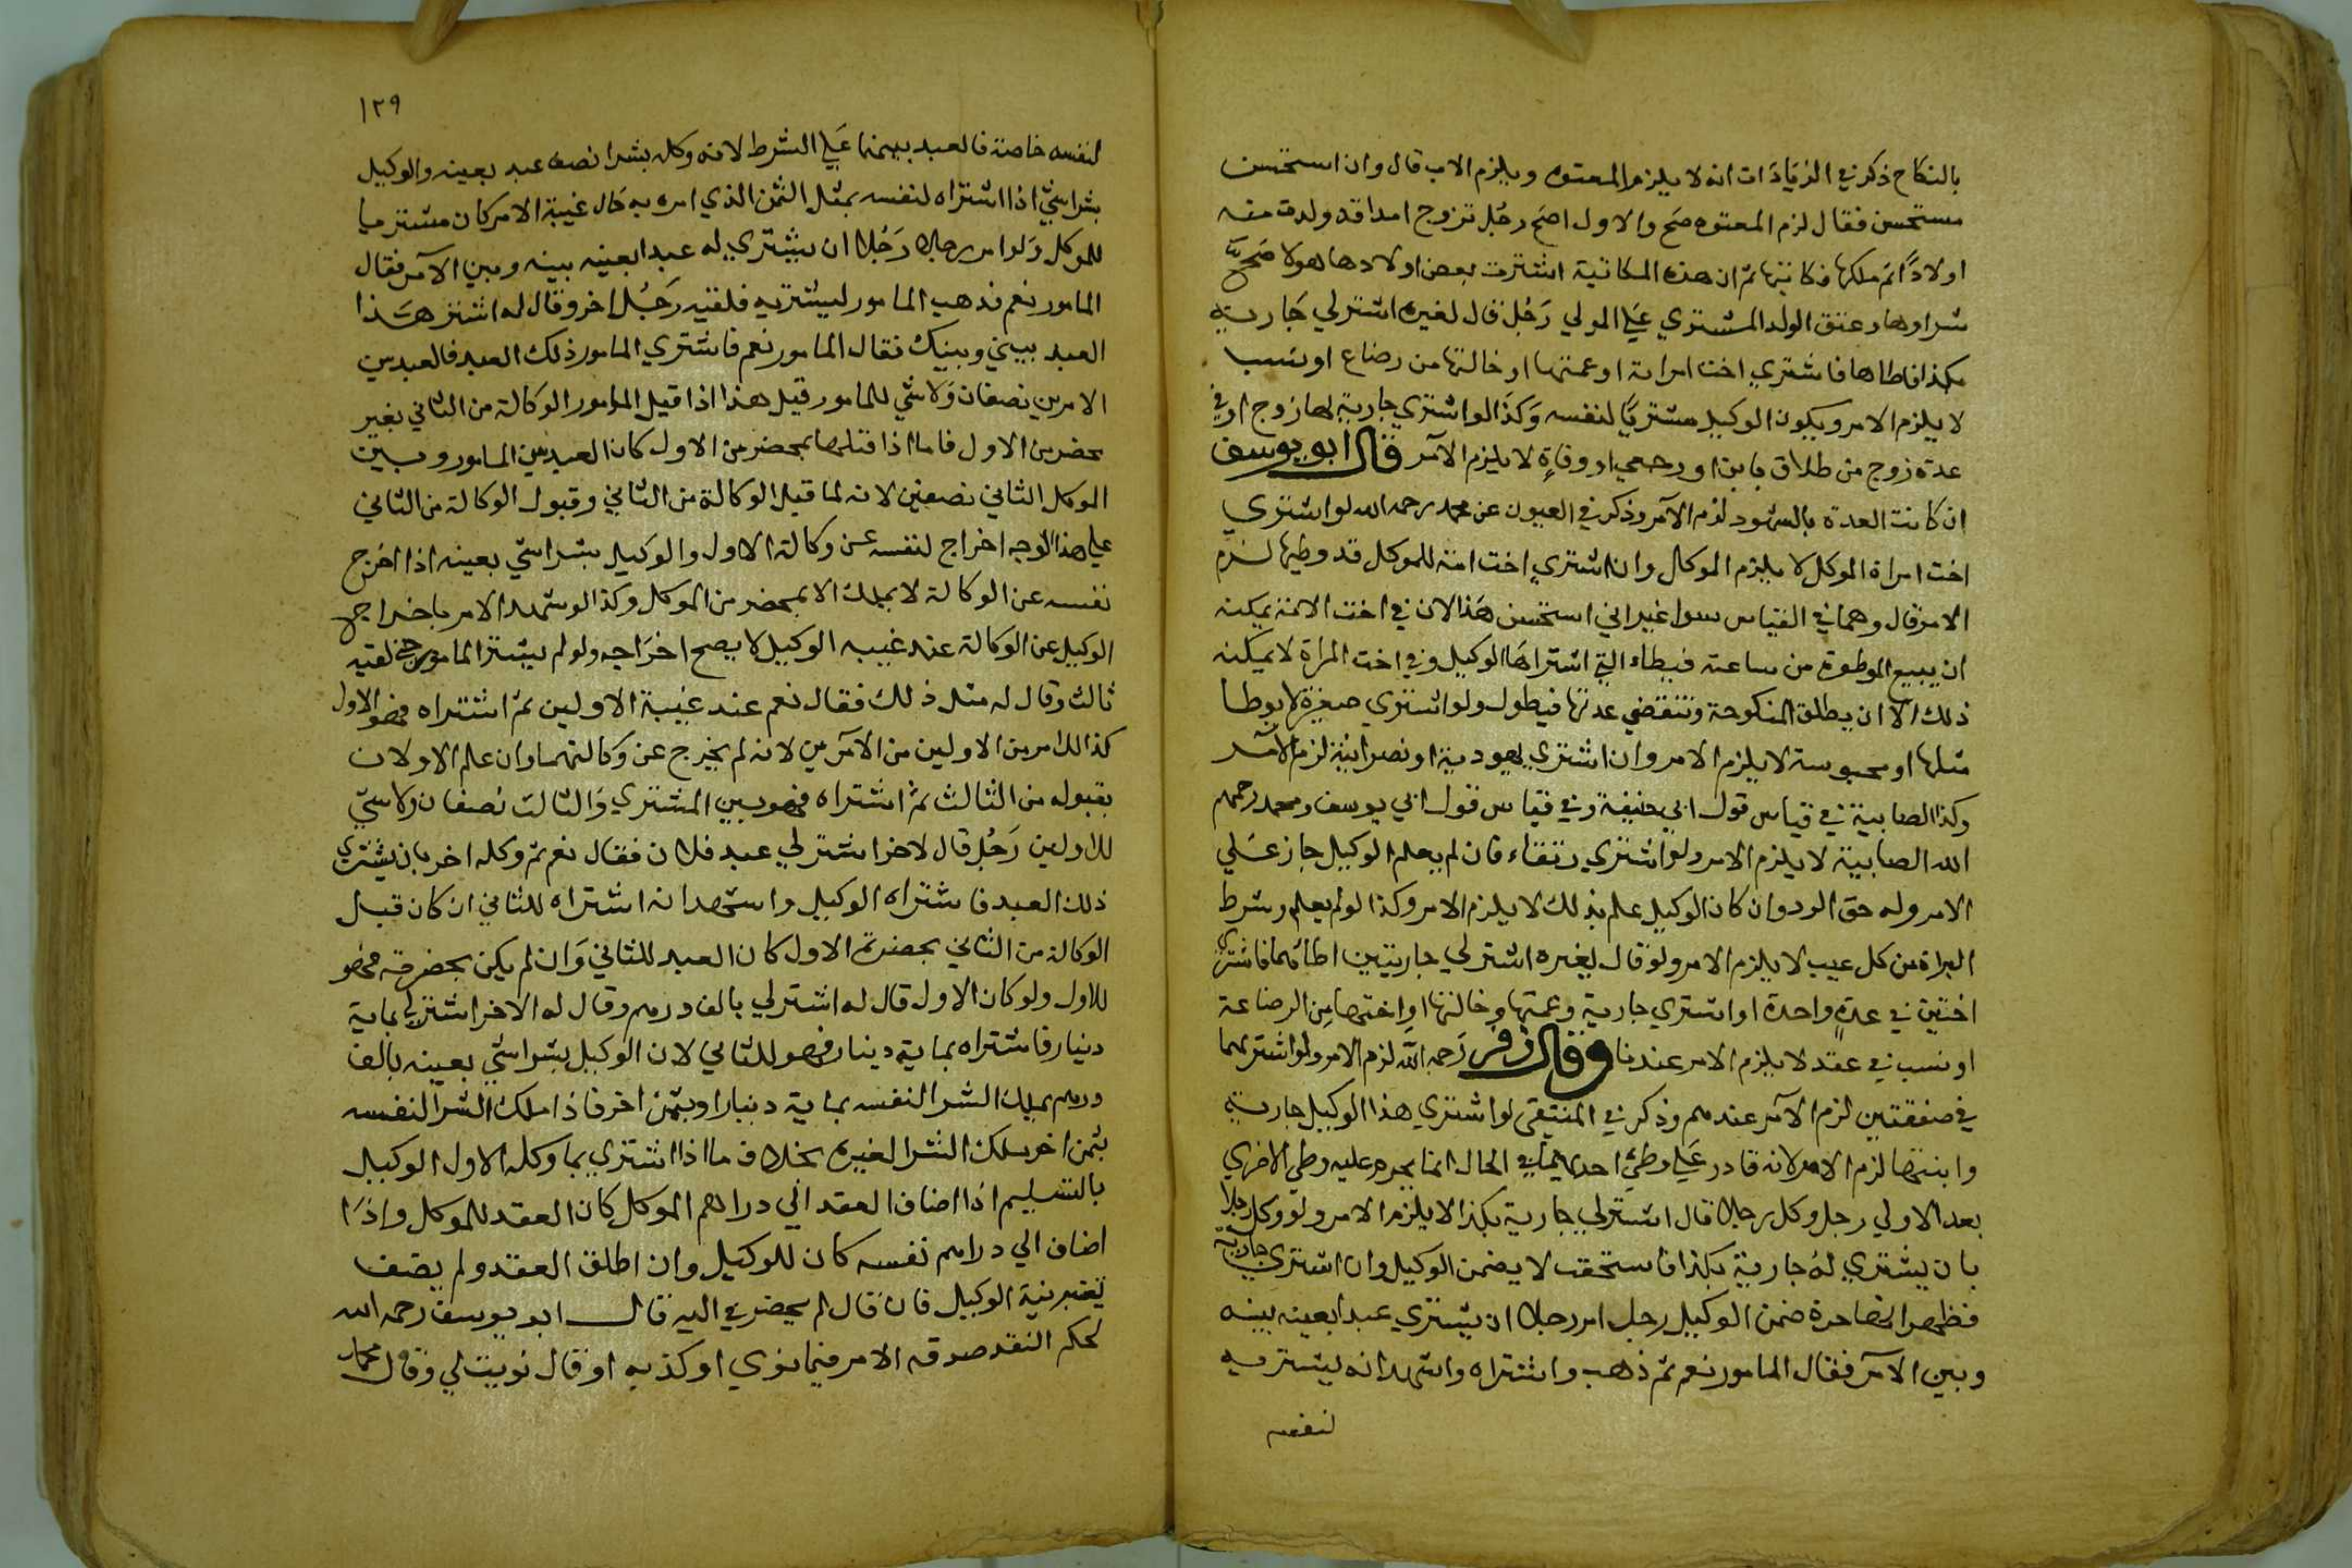 بالنكاح ذكر في الزيادات انه لا يلزم المعتوه ويلزم الاب قال وان استحسن
مستحسن فقال لزم المعتوه صح والاول اصح رجل تزوج امة قد ولدت منه
اولادًا ثم ملكها فكاتبها ثم ان هذه المكاتبة اشترت بعض اولادها هولا صح
شراوها وعتق الولد المشتري علي المولي رَجُل قال لغيره اشتر لي جَارية
بكذا اطاها فاشتري اخت امراته او عمتها او خالتها من رضاع او نسب
لا يلزم الامر ويكون الوكيل مشتريًا لنفسه وَكذا لو اشتري جارية لها زوج او في
عدة زوج من طلاق باين او رجعي او وفاةٍ لا يلزم الآمر قال ابو يوسف
ان كانت العدة بالشهود لزم الآمر وذكر في العيون عن محمد رحمه الله لو اشتري
اخت امراة الموكل لا يلزم الموكل وان اشتري اخت امة للموكل قد وطيها لزم
الامر قال وهما في القياس سوا غير اني استحسن هذا لان في اخت الامة يمكنه
ان يبيع الموطوة من ساعته فيطاء التي اشتراها الوكيل وفي اخت المراة لا يمكنه
ذلك الا ان يطلق المنكوحة وتنقضي عدتها فيطول ولو اشتري صغيرة لا يوطا
مثلها او مجوسة لا يلزم الامر وان اشتري يهودية او نصرانية لزم الآمر
وكذا الصابية في قياس قول ابي حنيفة وفي قياس قول ابي يوسف ومحمد رحمهم
الله الصابية لا يلزم الامر ولو اشتري رتقاء فان لم يعلم الوكيل جاز عَلي
الامر وله حق الرد وان كان الوكيل علم بذلك لا يلزم الامر وكذا لو لم يعلم وشرط
البراة من كل عيب لا يلزم الامر ولو قال لغيره اشتر لي جاريتين اطاهما فاشتري
اختين في عقدٍ واحدة او اشتري جارية وعمتها وخالتها او اختها من الرضاعة
او نسب في عقد لا يلزم الامر عندنا وقال زفر رَحمه الله لزم الامر ولو اشتريهما
في صفقتين لزم الآمر عندهم وذكر في المنتقي لو اشتري هذا الوكيل جارية
وابنتها لزم الامر لانه قادر علي وطئ احديهما في الحال انما يحرم عليه وطي الاخري
بعد الاولي رجل وكل رجلا قال اشتر لي جارية بكذا لا يلزم الامر ولو وكل رجلا
بان يشتري لهُ جارية بكذا فاستحقت لا يضمن الوكيل وان اشتري جارية
فظهر انها حرة ضمن الوكيل رجل امر رجلا ان يشتري عبدا بعينه بينه
وبين الآمر فقال المامور نعم ثم ذهب واشتراه واشهد انه ليشتريه
لنفسه
١٢٩
لنفسه خاصة فالعبد بينهما عَلي الشرط لانه وكله بشرا نصف عبد بعينه والوكيل
بشرا شئ اذا اشتراه لنفسه بمثل الثمن الذي امره به حَال غيبة الامر كان مشتريا
للموكل وَلو امر رجل رَجُلا ان يشتري له عبدا بعينه بينه وبين الآمر فقال
المامور نعم فذهب المامور ليشتريه فلقيه رَجُل اخر وقال له اشتر هَذا
العبد بيني وبينك فقال المامور نعم فاشتري المامور ذلك العبد فالعبد بين
الامرين نصفان وَلا شي للمامور قيل هذا اذا قبل المامور الوكالة من الثاني بغير
محضر من الاول فاما اذا قبلها بمحضر من الاول كان العبد بين المامور وبين
الموكل الثاني نصفين لانه لما قبل الوكالة من الثاني وقبول الوكالة من الثاني
علي هذا الوجه اخراج لنفسه عن وكالة الاول والوكيل بشرا شي بعينه اذا اخرج
نفسه عن الوكالة لا يملك الا بمحضر من الموكل وكذا لو شهد الامر باخراج
الوكيل عن الوكالة عند غيبه الوكيل لا يصح اخرَاجه ولو لم يشتر المامور حتي لقيه
ثالث وقال له مثل ذلك فقال نعم عند غيبة الاولين ثم اشتراه فهو الاول
كذا للامرين الاولين من الآمرين لانه لم يخرج عن وكالتهما وان علم الاولان
بقبوله من الثالث ثم اشتراه فهو بين المشتري وَالثالث نصفان ولا شئ
للاولين رَجُل قال لاخر اشتر لي عبد فلان فقال نعم ثم وكله اخر بان يشتري
ذلك العبد فاشتراه الوكيل واشهد انه اشتراه للثاني ان كان قبل
الوكالة من الثاني بحضرة الاول كان العبد للثاني وَان لم يكن بحضرته فهو
للاول ولو كان الاول قال له اشتر لي بالف درهم وقال له الاخر اشتر لي بماية
دينار فاشتراه بماية دينار فهو للثاني لان الوكيل بشرا شي بعينه بالف
درهم يملك الشرا لنفسه بماية دينار او بثمن اخر فاذا ملك الشرا لنفسه
بثمن اخر يملك الشرا لغيره بخلاف ما اذا اشتري بما وكله الاول الوكيل
بالتسليم اذا اضاف العقد الي دراهم الموكل كان العقد للموكل واذَا
اضاف الي دراهم نفسه كان للوكيل وان اطلق العقد ولم يضف
يعتبر نية الوكيل فان قال لم يحضر في النيه قال ابو يوسف رحمه الله
يحكم النقد صدقه الامر فيما نوي او كذبه او قال نويت لي وقال محمد